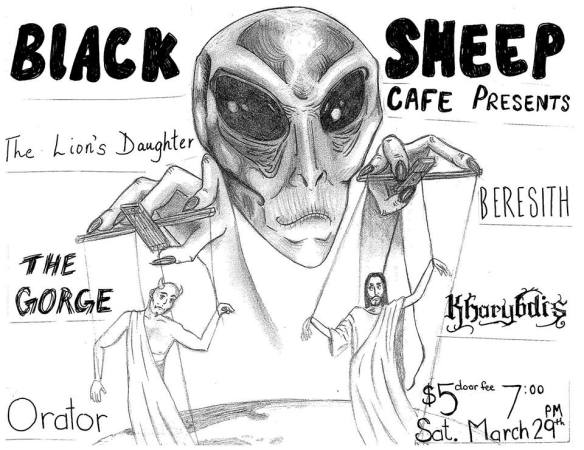 BLACK SHEEP
CAFE PRESENTS
The Lion's Daughter
BERESITH
THE
GORGE
Kharybdis
Orator
$5 door fee 7:00 PM
Sat. March 29th